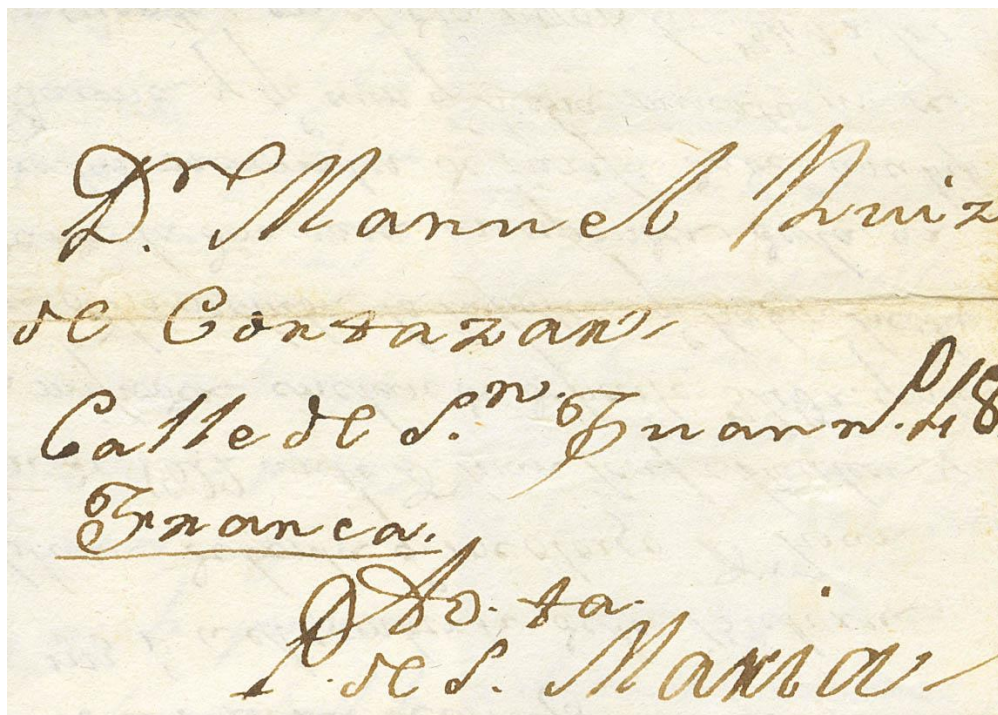 Dn. Manuel Ruiz
de Cortazar
Calle de Sn. Juan n.º 48
Franca.
Pto. de Sta. Maria